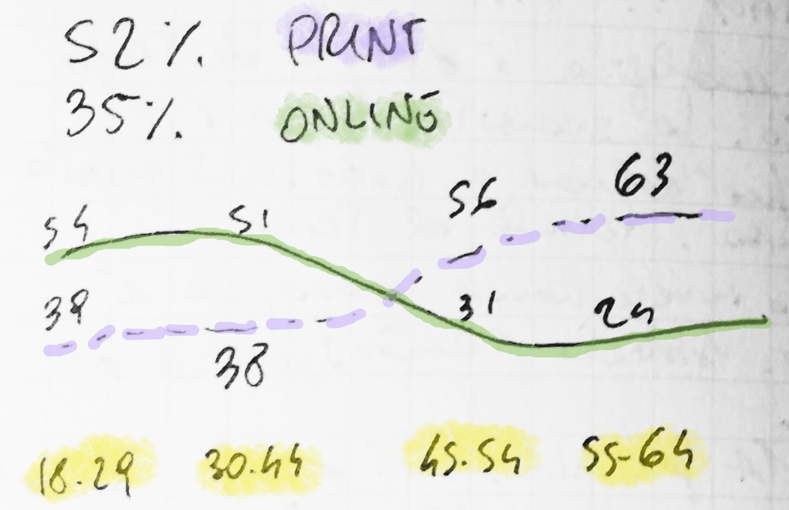 52% PRINT
35% ONLINE
54 51 56 63
38 38 31 24
18.29 30.44 45.54 55-64